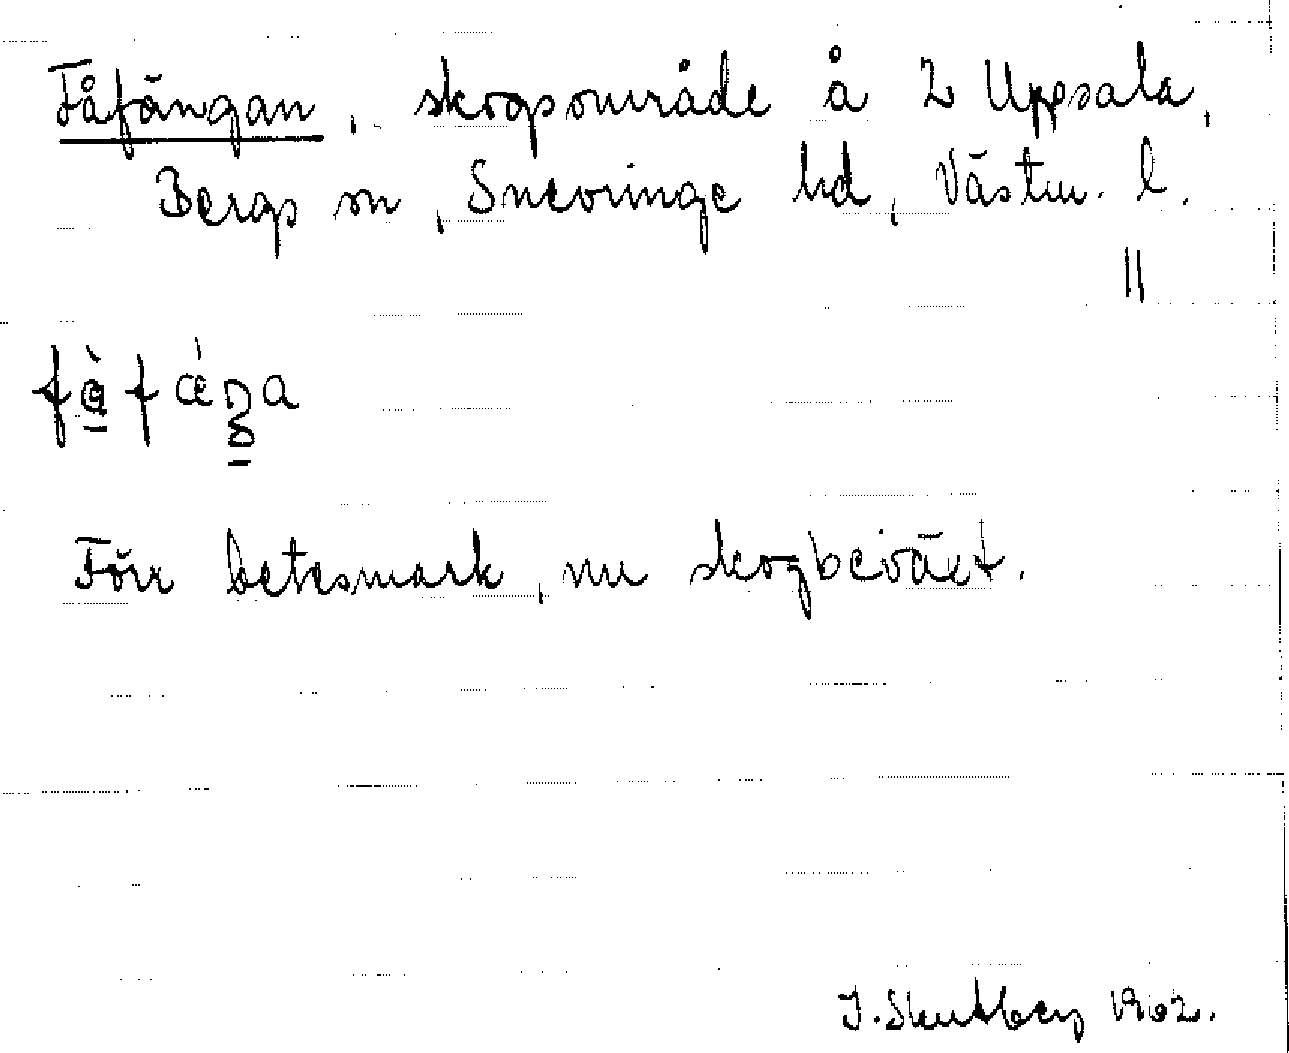 Fåfängan, skogsområde å 2 Uppsala,
Bergs sn, Snevringe hd, Västm. l.
Förr betesmark, nu skogbeväxt.
J. Skutberg 1962.